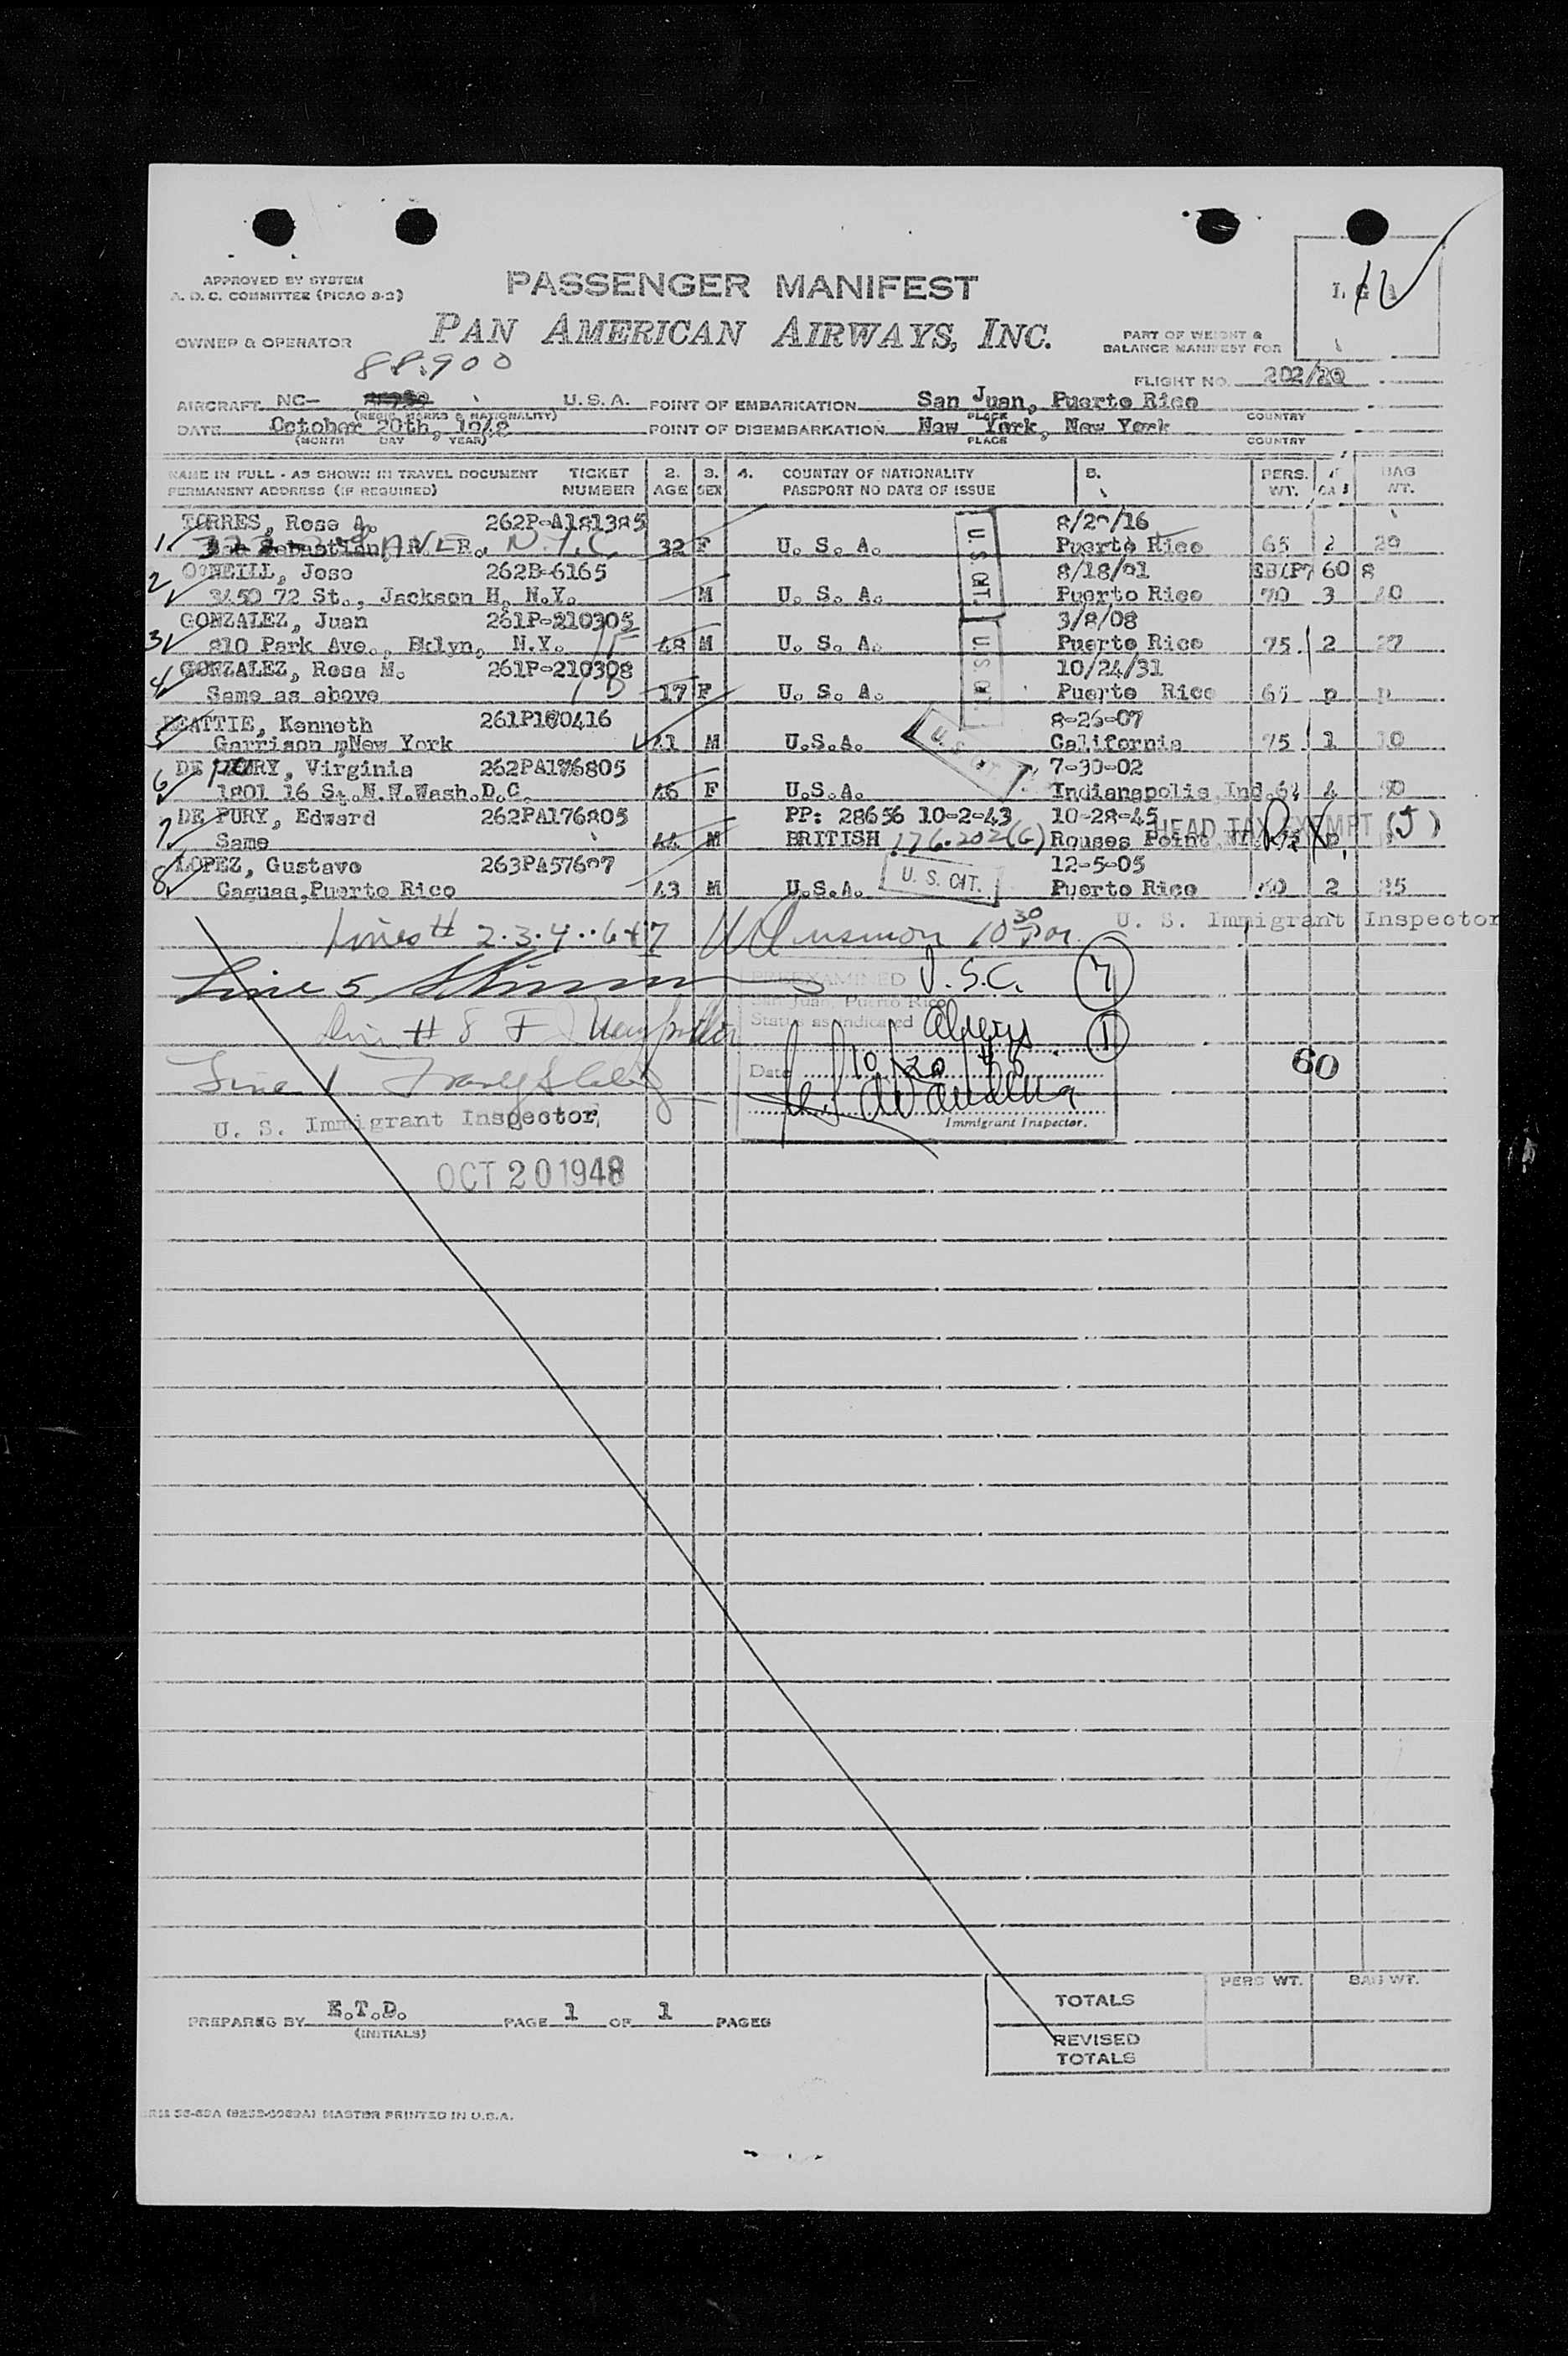 APPROVED BY SYSTEM
A. O. C. COMMITTEE (PICAO 8-2)
PASSENGER MANIFEST
PAN AMERICAN AIRWAYS, INC.
OWNER & OPERATOR
PART OF WEIGHT &
BALANCE MANIFEST FOR
88900
FLIGHT NO. 202/20
AIRCRAFT NC- U.S.A. POINT OF EMBARKATION San Juan, Puerto Rico
(REGIS. MARKS & NATIONALITY) PLACE COUNTRY
DATE October 20th, 1948 POINT OF DISEMBARKATION New York, New York
(MONTH DAY YEAR) PLACE COUNTRY
NAME IN FULL - AS SHOWN IN TRAVEL DOCUMENT TICKET 2. 3. 4. COUNTRY OF NATIONALITY 5. PERS. BAG
PERMANENT ADDRESS (IF REQUIRED) NUMBER AGE SEX PASSPORT NO DATE OF ISSUE WT. WT.
TORRES, Rosa A. 262P-A181385 8/20/16
1. San Sebastian, N.Y.C. 32 F U. S. A. Puerto Rico 65 2 29
U.S. CIT.
2 O'NEILL, Jose 262B-6165 8/18/01 60 8
3450 72 St., Jackson H. N.Y. M U. S. A. Puerto Rico 70 3 40
GONZALEZ, Juan 261P-210305 3/8/08
3 810 Park Ave., Bklyn, N.Y. 48 M U. S. A. Puerto Rico 75 2 27
4 GONZALEZ, Rosa M. 261P-210308 10/24/31
Same as above 17 F U. S. A. Puerto Rico 65 p p
BEATTIE, Kenneth 261P180416 8-26-07
5 Garrison, New York 41 M U.S.A. California 75 1 10
U.S. CIT.
6 DE PURY, Virginia 262PA176805 7-30-02
1801 16 St.N.W.Wash.D.C. 46 F U.S.A. Indianapolis Ind. 64 4 90
DE PURY, Edward 262PA176805 PP: 28656 10-2-43 10-28-45
HEAD TAX EXEMPT (J)
7 Same 44 M BRITISH 176.202(G) Rouses Point
8 LOPEZ, Gustavo 263PA57607 12-5-05
Caguas, Puerto Rico 43 M U.S.A. U. S. CIT. Puerto Rico 60 2 25
Lines # 2.3.4..6+7 10 30
U. S. Immigrant Inspector
Line 5
PREEXAMINED U.S.C. 7
San Juan, Puerto Rico
Status as indicated Aliens 1
Line # 8
Date 10/20/48
60
Line 1
Immigrant Inspector.
U. S. Immigrant Inspector
OCT 20 1948
PERS WT. BAG WT.
TOTALS
PREPARED BY E.T.D. PAGE 1 OF 1 PAGES
(INITIALS)
REVISED
TOTALS
MASTER PRINTED IN U.S.A.